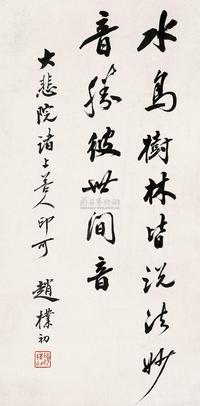 水鸟樹林皆说法妙
音勝彼世间音
大悲院诸上善人印可
趙樸初